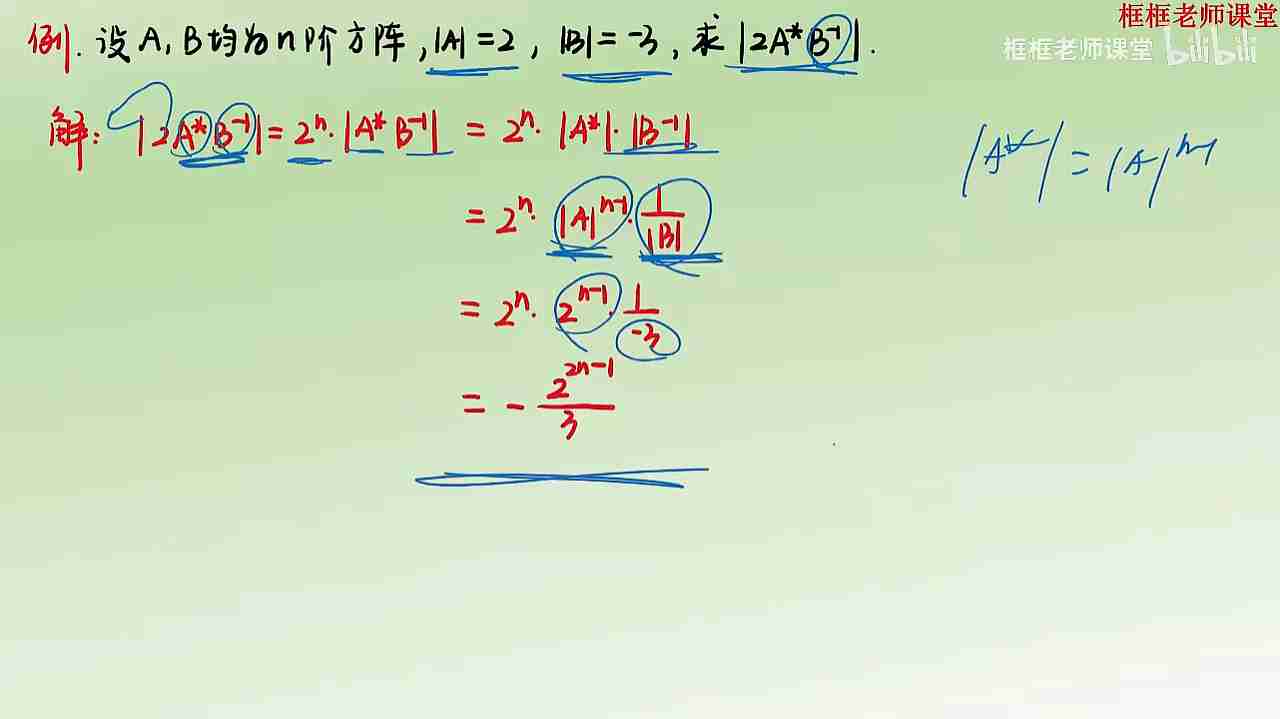 框框老师课堂
框框老师课堂 bilibili
例. 设 A, B 均为 n 阶方阵, |A| = 2, |B| = -3, 求 |2A* B⁻¹|.
解: |2A* B⁻¹| = 2ⁿ· |A* B⁻¹| = 2ⁿ· |A*|· |B⁻¹|
|A*| = |A|ⁿ⁻¹
= 2ⁿ· |A|ⁿ⁻¹· 1/|B|
= 2ⁿ· 2ⁿ⁻¹· 1/-3
= - 2²ⁿ⁻¹/3